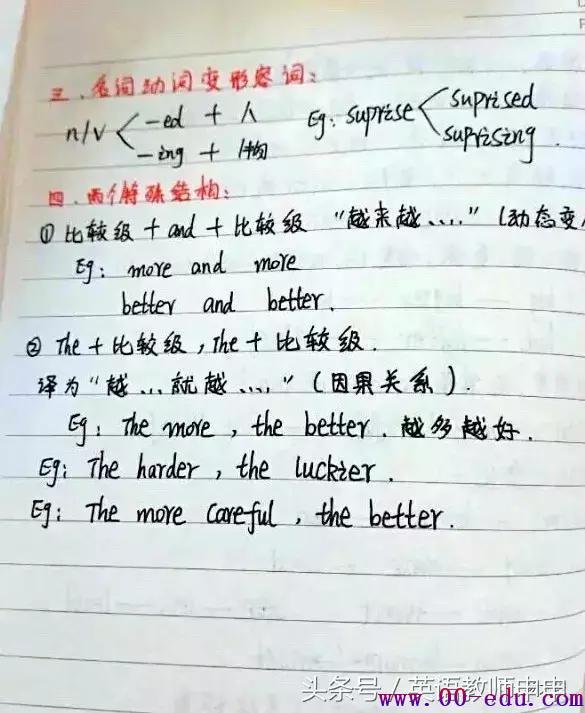 三、名词动词变形容词：
n/v < -ed + 人 Eg: suprise < suprised
-ing + 物 suprising.
四、两个特殊结构：
① 比较级 + and + 比较级 "越来越...." (动态变
Eg: more and more
better and better.
② The + 比较级, the + 比较级.
译为"越...就越...." (因果关系).
Eg: The more, the better. 越多越好.
Eg: The harder, the luckier.
Eg: The more careful, the better.
头条号/英语教师申申
www.00-edu.com